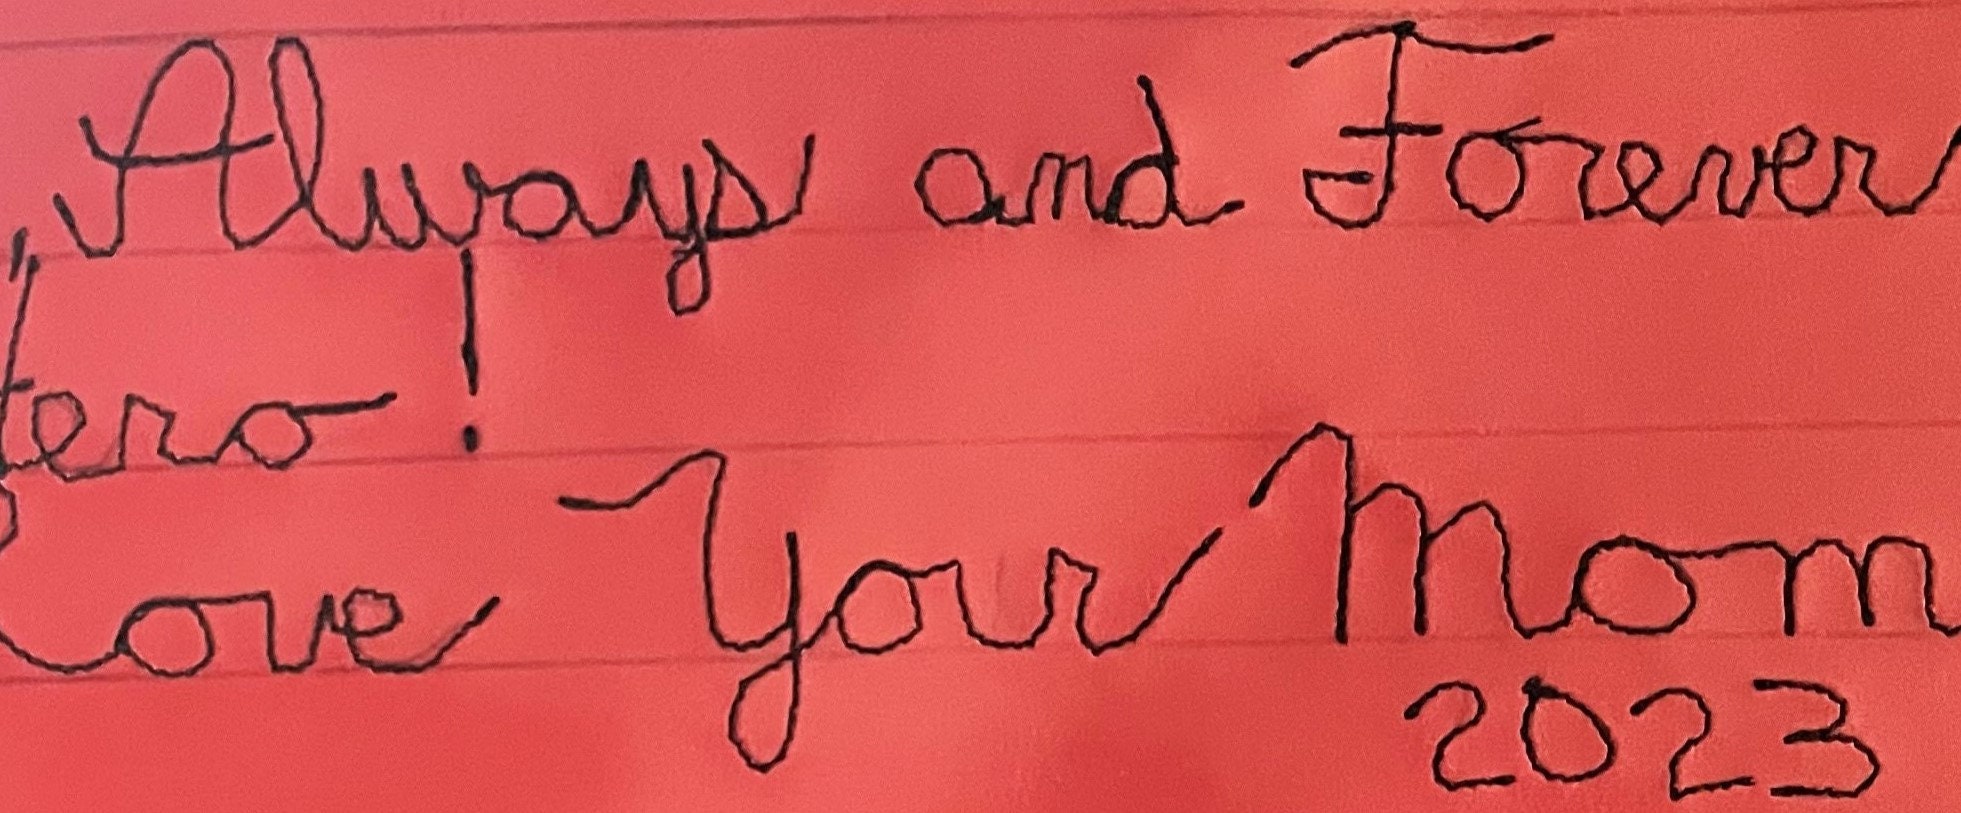 Always and Forever
Hero!
Love Your Mom
2023